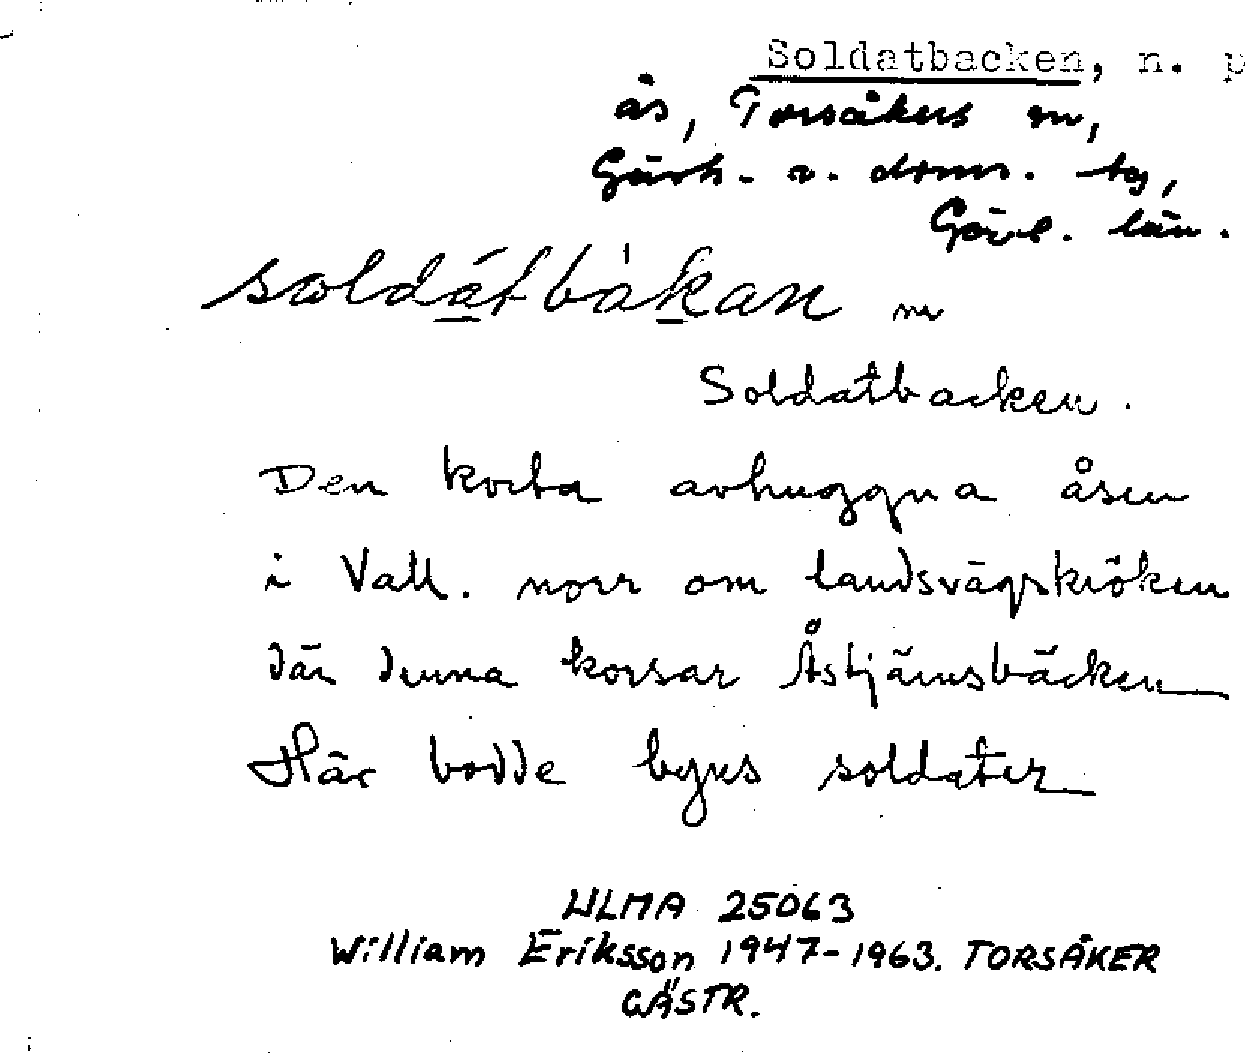 Soldatbacken, n. p
ås, Torsåkers sn,
Gästr. v. doms. tg,
Gävl. län.
soldátbàkan m
Soldatbacken.
Den korta avhuggna åsen
i Vall. norr om landsvägskröken
där denna korsar Åstjärnsbäcken
Här bodde byns soldater
ULMA 25063
William Eriksson 1947-1963. TORSÅKER
GÄSTR.